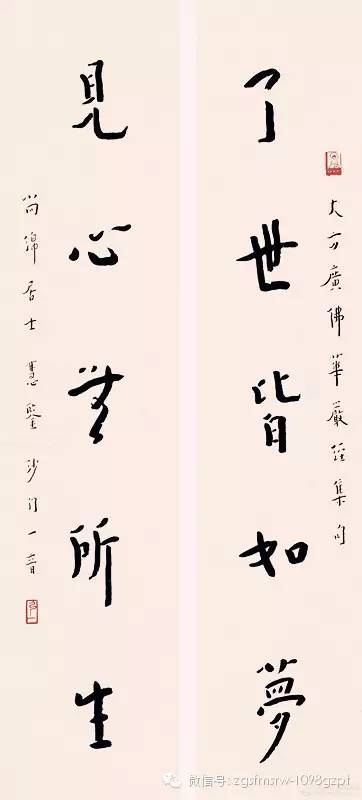 大方廣佛華嚴經集句
了世皆如夢
見心無所生
尚綿居士慧鑒沙門一音
微信号: zgsfmsrw-1098gzpt